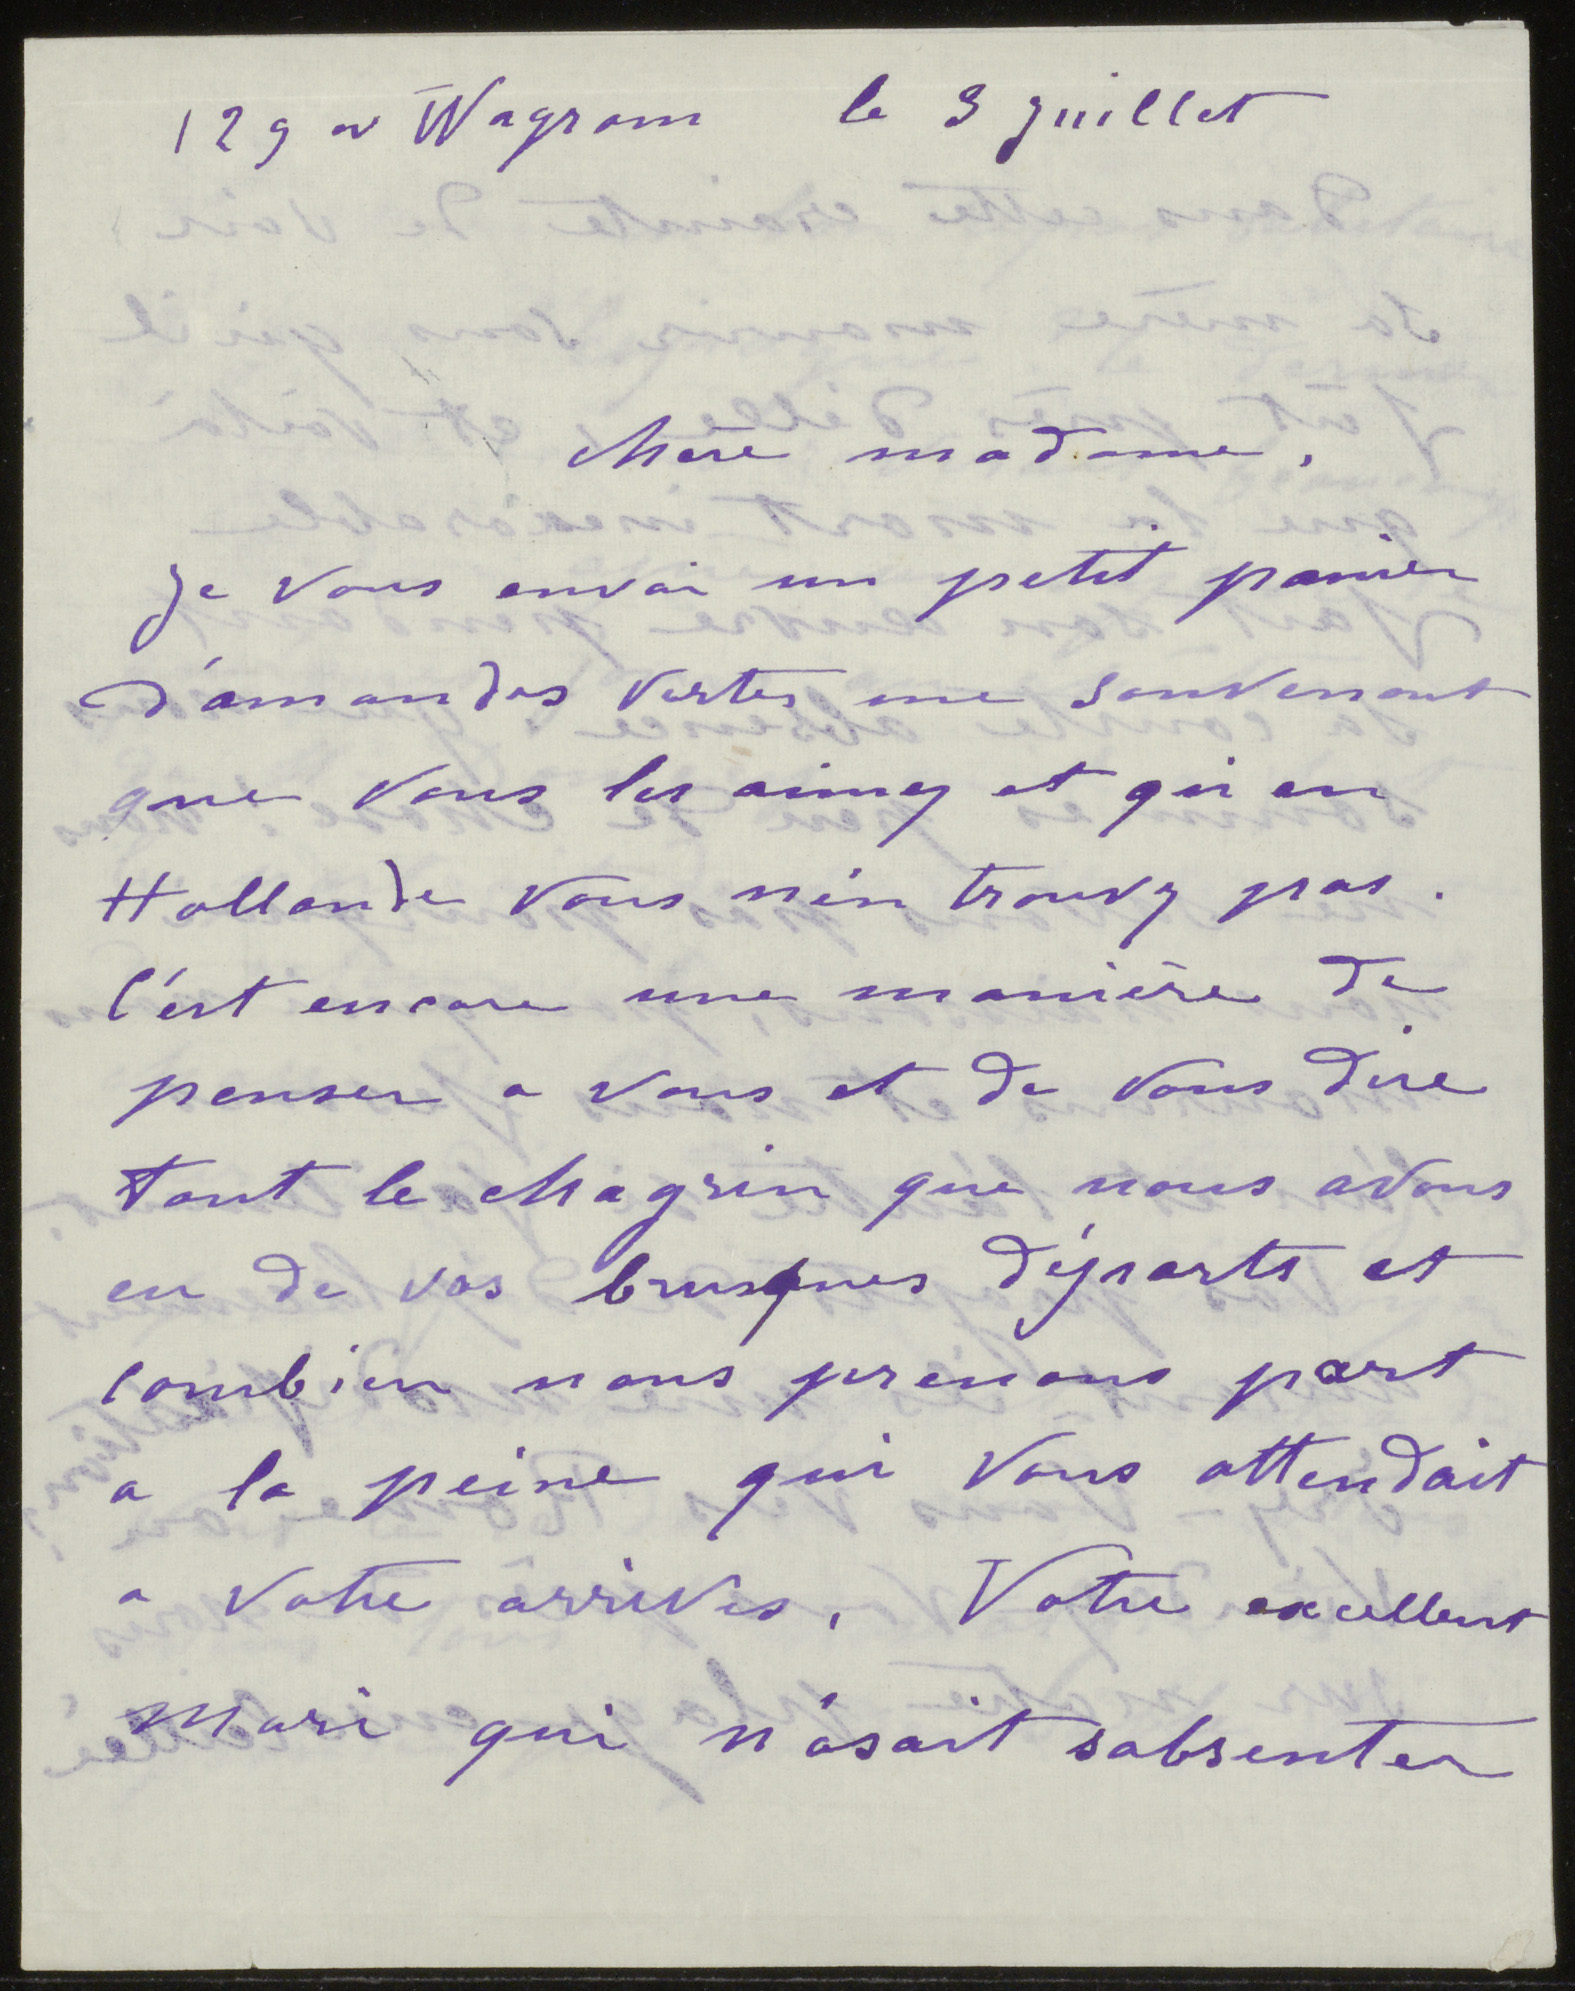 129 av Wagram le 3 juillet
Chère madame,
Je vous envoi un petit panier
d'amandes vertes me souvenant
que vous les aimez et qu'en
Hollande vous n'en trouvez pas.
C'est encore une manière de
penser a vous et de vous dire
tout le chagrin que nous avons
eu de vos brusques départs et
combien nous prenons part
a la peine qui vous attendait
a votre arrivés. Votre excellent
mari qui n'osait sabsenter